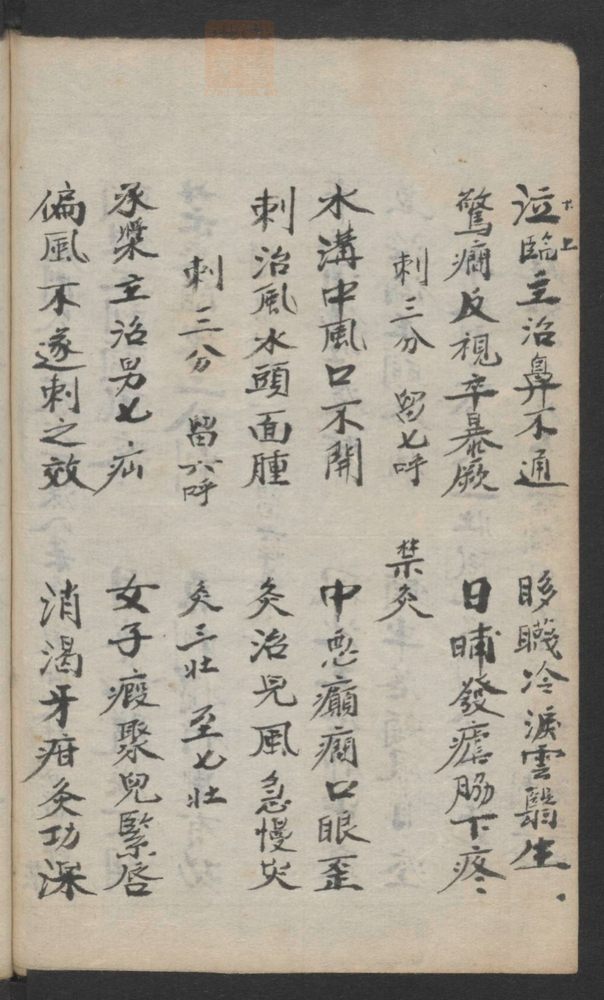 泣臨主治鼻不通　眵䁾冷淚雲翳生
驚癇反視卒暴厥　日晡發瘧脇下疼
刺三分　留七呼　禁灸
水溝中風口不開　中惡癲癇口眼歪
刺治風水頭面腫　灸治児風急慢災
刺三分　留六呼　灸三壯　至七壯
承槳主治男七疝　女子瘕聚兒緊唇
偏風不遂刺之效　消渴牙疳灸功深